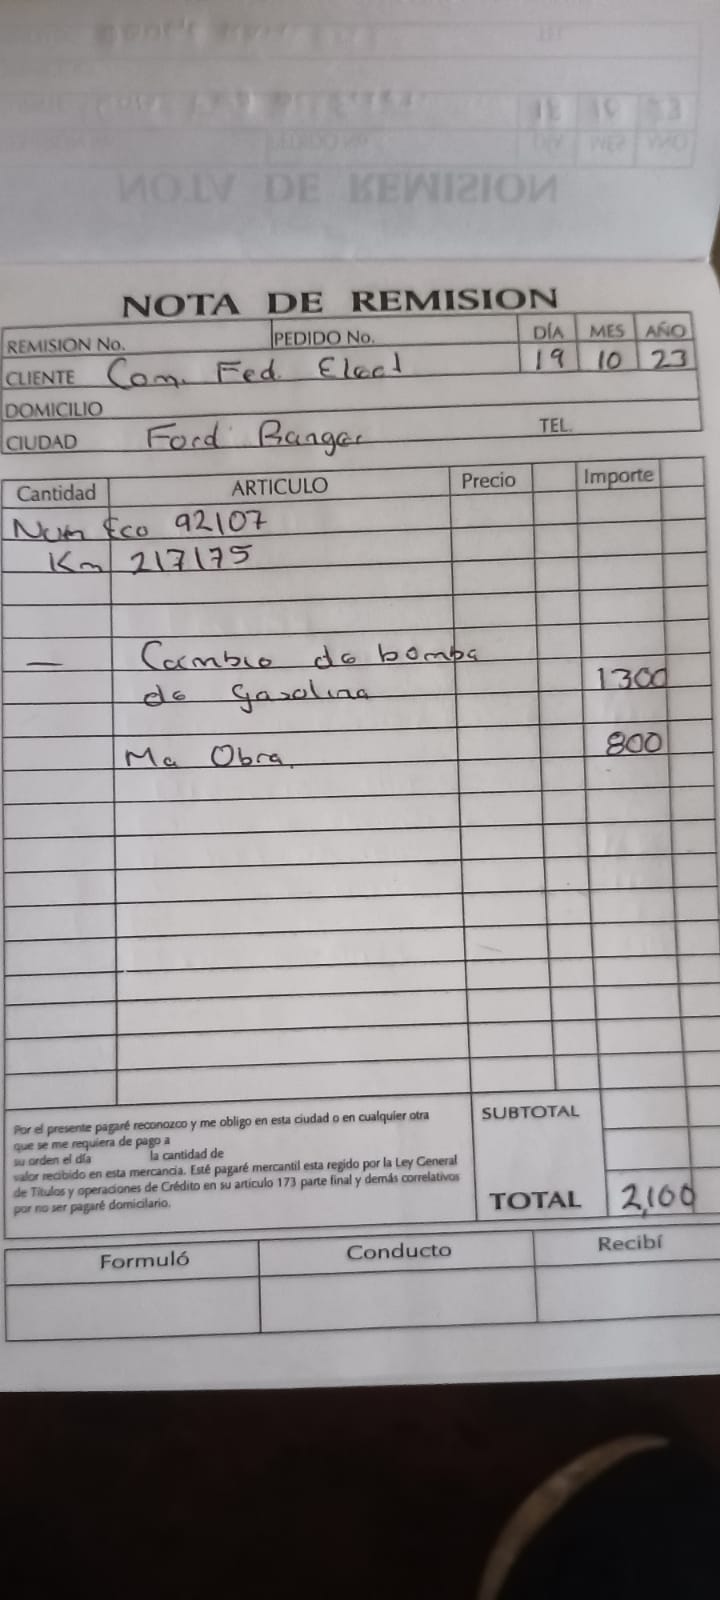 NOTA DE REMISION
REMISION No. PEDIDO No. DÍA MES AÑO
CLIENTE Com. Fed. Elect 19 10 23
DOMICILIO
CIUDAD Ford Ranger TEL.
Cantidad ARTICULO Precio Importe
Num Eco 92107
Km 217175
— Cambio de bomba
de gasolina 1300
Ma Obra. 800
Por el presente pagaré reconozco y me obligo en esta ciudad o en cualquier otra
que se me requiera de pago a
su orden el día la cantidad de
valor recibido en esta mercancia. Esté pagaré mercantil esta regido por la Ley General
de Titulos y operaciones de Crédito en su articulo 173 parte final y demás correlativos
por no ser pagaré domicilario.
SUBTOTAL
TOTAL 2,100
Formuló Conducto Recibí